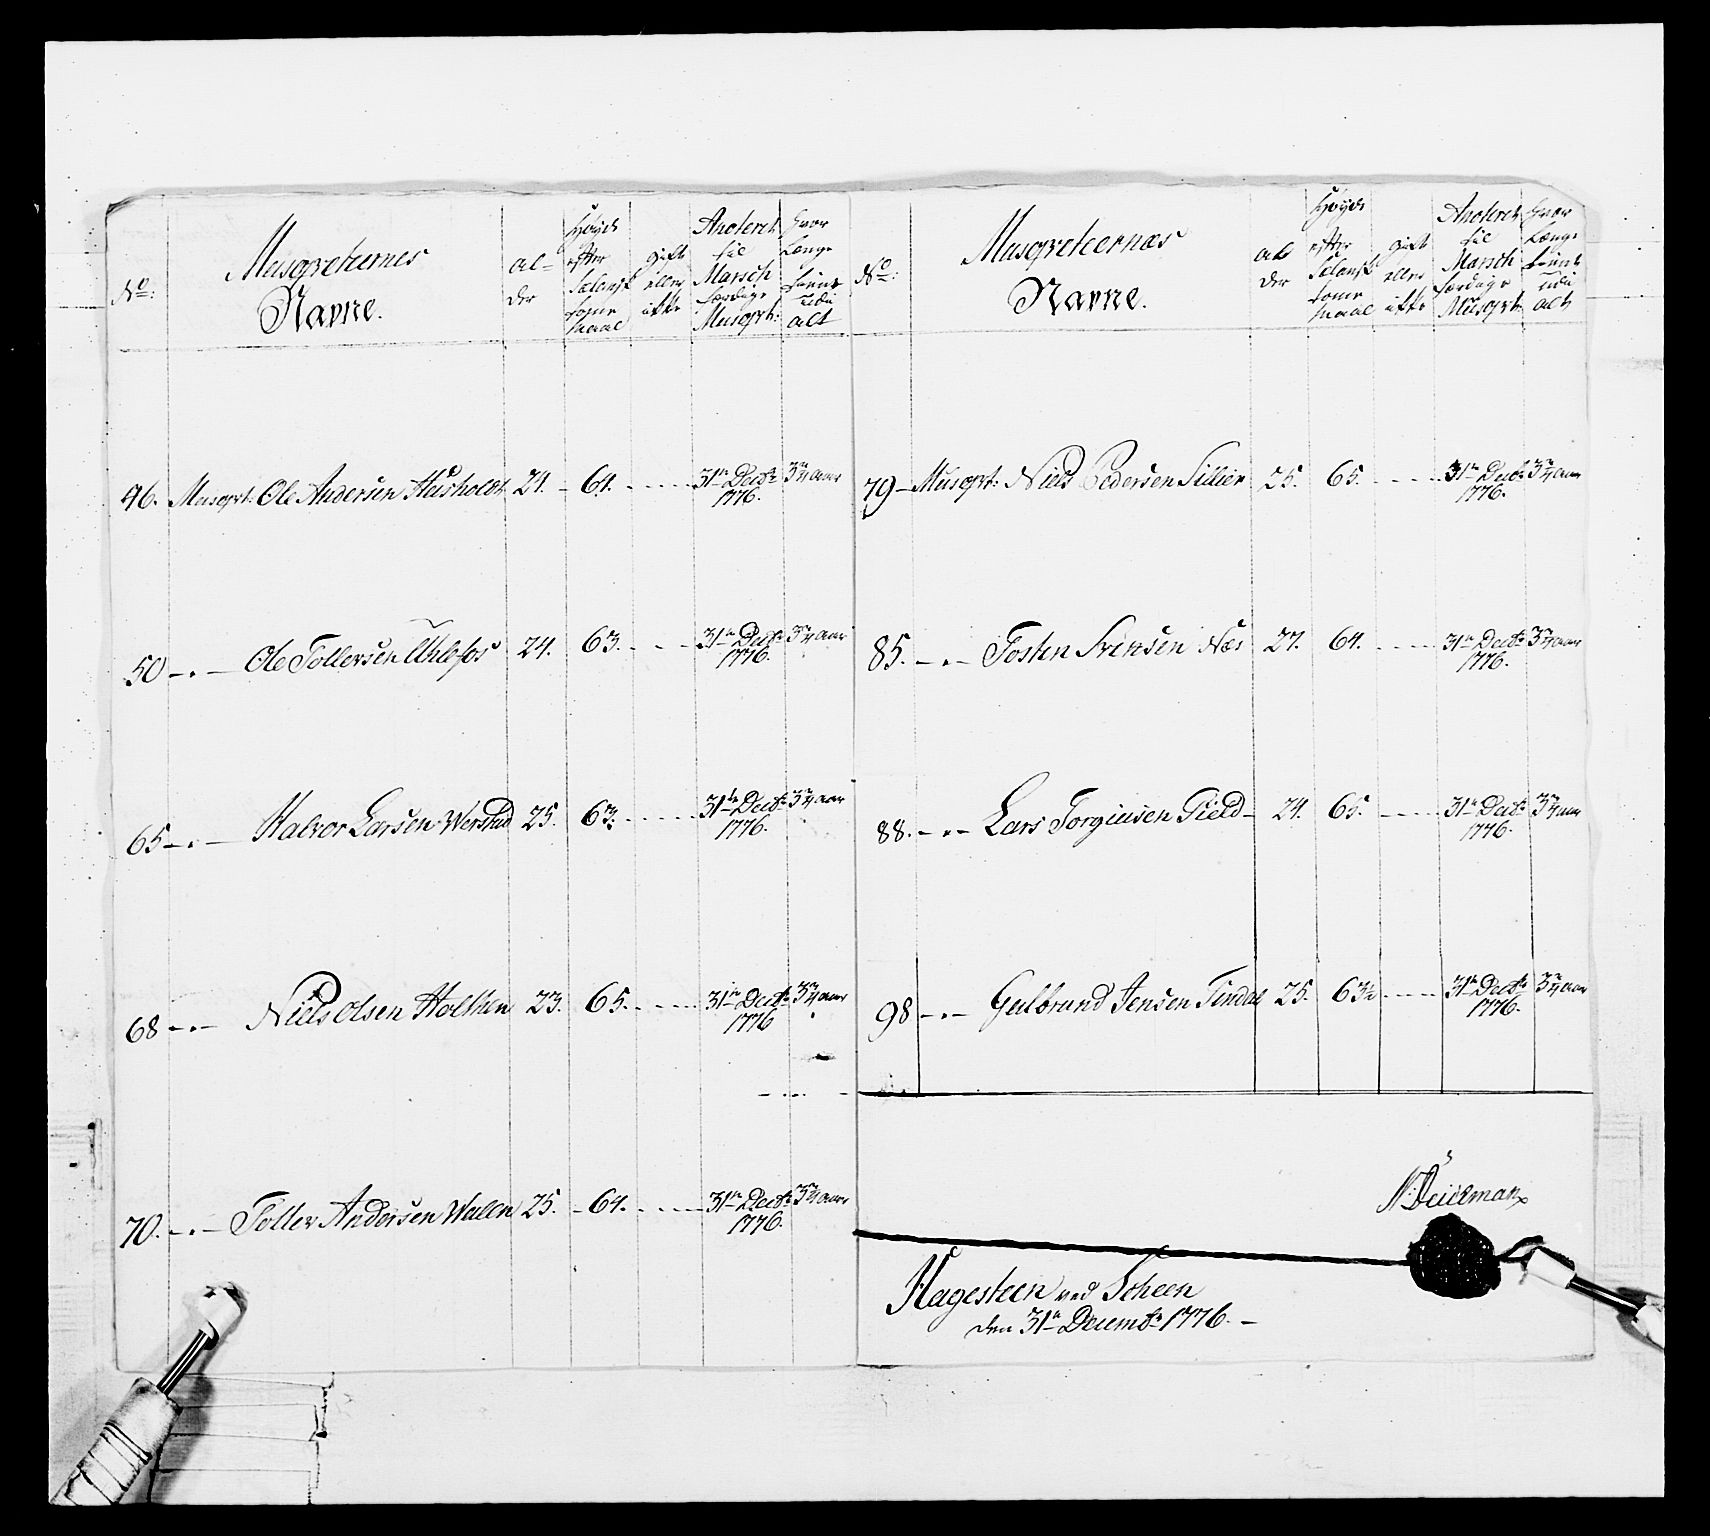 No:
Musqveternes
Navne.
al=
der
Høyde
efter
Sælansk
tomme
maal
gift
eller
ikke
Anoteret
til
Marsch
færdige
Musqvt:
hvor
Længe
tiente
udi
alt
46. Musqvt: Ole Andersen Hasholdt 24. 64. 31te Decbr 1776. 3 3/4 aar
50 Ole Tollersen Uhlefos 24. 63. 31te Decbr 1776. 3 3/4 aar
65 Halvor Larsen Werstad 25. 63. 31te Decbr 1776. 3 3/4 aar
68 Niels Olsen Holthen 23. 65. 31te Decbr 1776 3 3/4 aar
70. Toller Andersen Walen 25. 64. 31te Decbr 1776. 3 3/4 aar
No:
Musqveteernes
Navne.
al=
der
Høyde
efter
Sælansk
tomme
maal
gift
eller
ikke
Anoteret
til
Marsch
færdige
Musqvt:
hvor
Længe
tiente
udi
alt
79 Musqvt: Niels Pedersen Sillien 25. 65. 31te Decbr 1776. 3 3/4 aar
85. Tosten Svensen Næs 27. 64. 31te Decbr 1776. 3 3/4 aar
88. Lars Torgiusen Field 24. 65. 31te Decbr 1776. 3 3/4 aar
98 Gulbrand Jensen Tindal 25. 63 1/2 31te Decbr 1776. 3 3/4 aar
Deichman
Hagesteen ved Scheen
den 31te Decembr 1776.